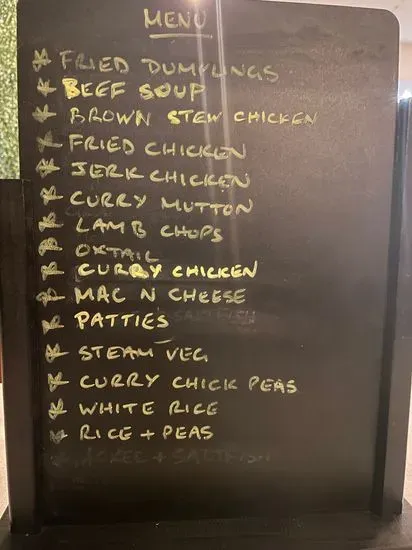 MENU
* FRIED DUMPLINGS
* BEEF SOUP
* BROWN STEW CHICKEN
* FRIED CHICKEN
* JERK CHICKEN
* CURRY MUTTON
* LAMB CHOPS
* OXTAIL
* CURRY CHICKEN
* MAC N CHEESE
* PATTIES
* STEAM VEG
* CURRY CHICK PEAS
* WHITE RICE
* RICE + PEAS
* ACKEE + SALTFISH